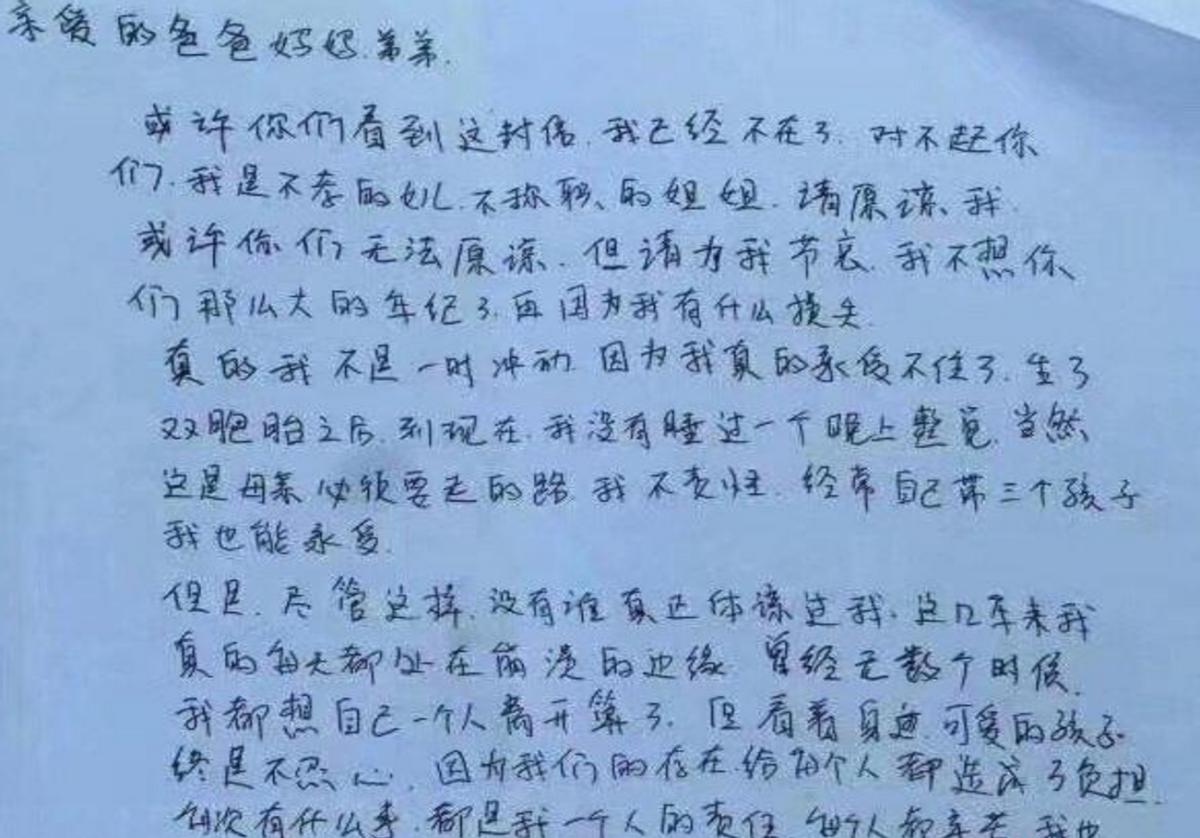 亲爱的爸爸妈妈.弟弟.
或许你们看到这封信.我已经不在了.对不起你
们.我是不孝的女儿.不称职的姐姐.请原谅我.
或许你们无法原谅.但请为我节哀.我不想你
们那么大的年纪了.再因为我有什么损失.
真的我不是一时冲动.因为我真的承受不住了.生了
双胞胎之后.到现在.我没有睡过一个晚上整觉.当然
这是母亲必须要走的路.我不责怪.经常自己带三个孩子
我也能承受.
但是.尽管这样.没有谁真正体谅过我.这几年来我
真的每天都处在崩溃的边缘.曾经无数个时候.
我都想自己一个人离开算了.但看着身边可爱的孩子.
终是不忍心.因为我们的存在.给每个人都造成了负担.
每次有什么事.都是我一个人的责任.每个人都辛苦.我也